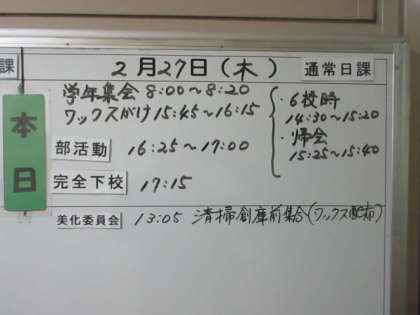 課
2月27日(木)
通常日課
本日
学年集会 8:00~8:20
ワックスがけ 15:45~16:15
・6校時
14:30~15:20
・帰会
15:25~15:40
部活動 16:25~17:00
完全下校 17:15
美化委員会 13:05 清掃倉庫前集合(ワックス配布)